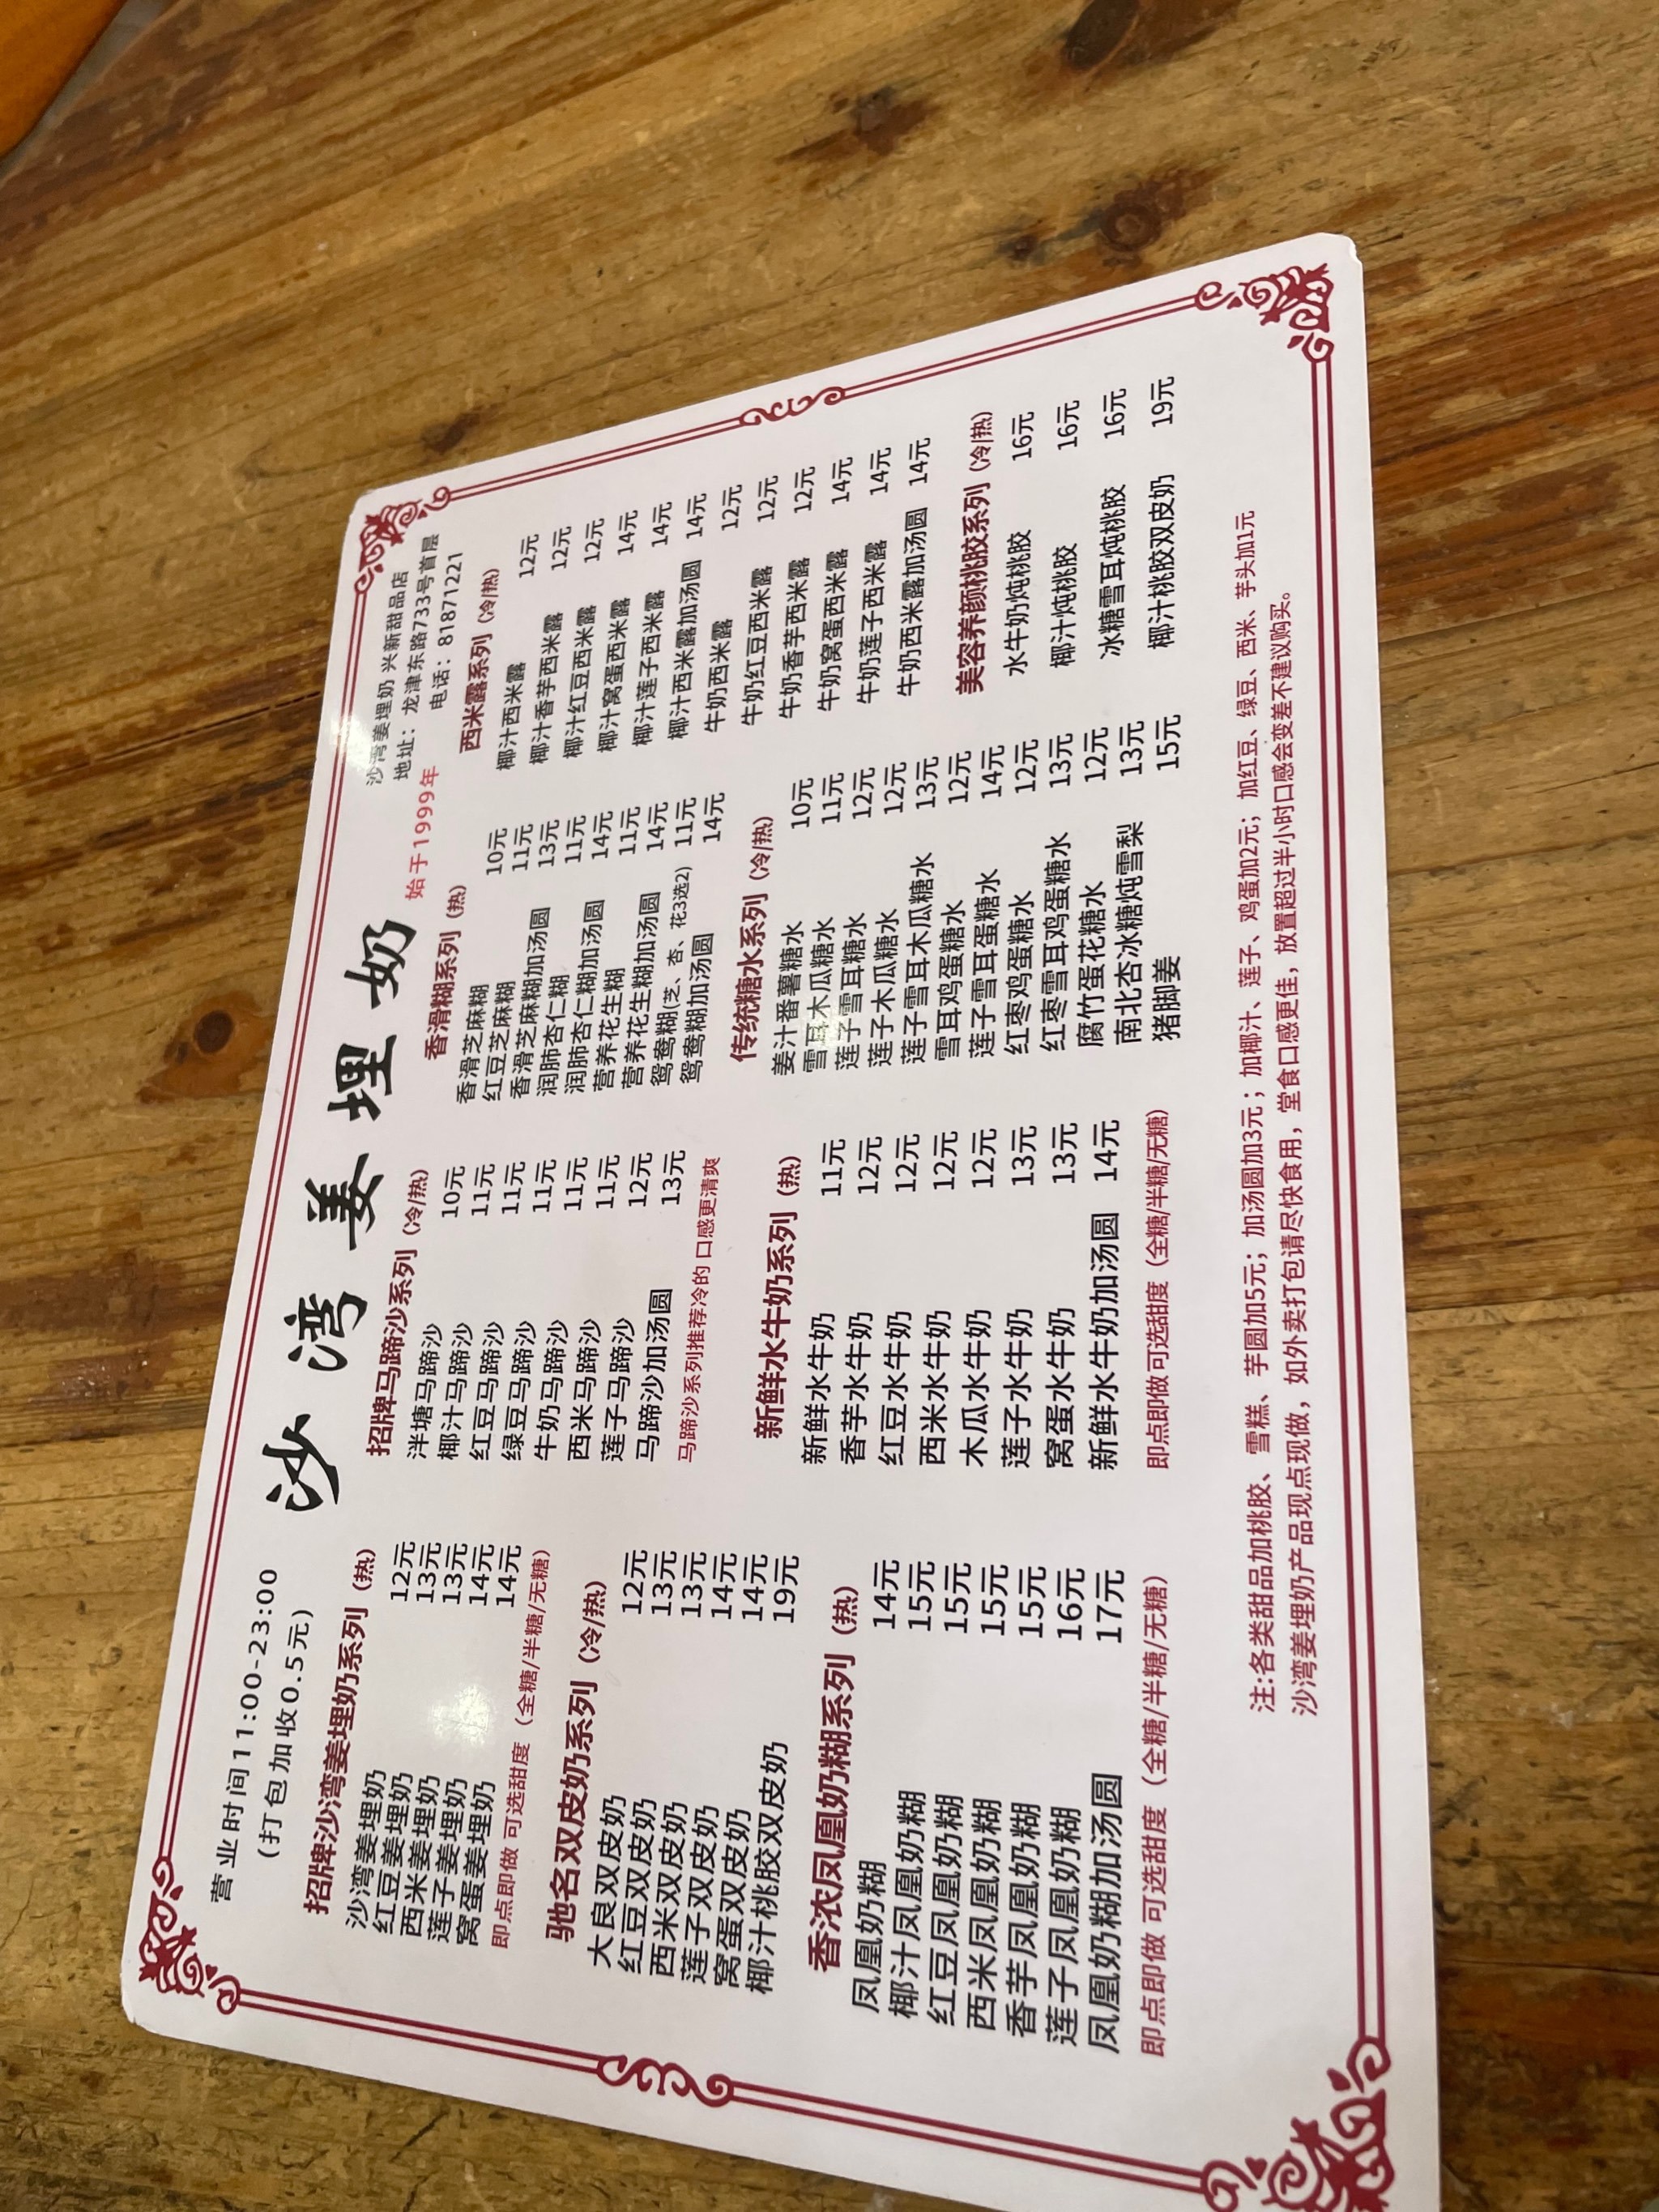 营业时间11:00-23:00
(打包加收0.5元)
沙湾姜埋奶
始于1999年
沙湾姜埋奶 兴新甜品店
地址：龙津东路733号首层
电话：81871221
招牌沙湾姜埋奶系列（热）
沙湾姜埋奶 12元
红豆姜埋奶 13元
西米姜埋奶 13元
莲子姜埋奶 14元
窝蛋姜埋奶 14元
即点即做 可选甜度（全糖/半糖/无糖）
驰名双皮奶系列（冷/热）
大良双皮奶 12元
红豆双皮奶 13元
西米双皮奶 13元
莲子双皮奶 14元
窝蛋双皮奶 14元
椰汁桃胶双皮奶 19元
香浓凤凰奶糊系列（热）
凤凰奶糊 14元
椰汁凤凰奶糊 15元
红豆凤凰奶糊 15元
西米凤凰奶糊 15元
香芋凤凰奶糊 15元
莲子凤凰奶糊 16元
凤凰奶糊加汤圆 17元
即点即做 可选甜度（全糖/半糖/无糖）
招牌马蹄沙系列（冷/热）
泮塘马蹄沙 10元
椰汁马蹄沙 11元
红豆马蹄沙 11元
绿豆马蹄沙 11元
牛奶马蹄沙 11元
西米马蹄沙 11元
莲子马蹄沙 12元
马蹄沙加汤圆 13元
马蹄沙系列推荐冷的 口感更清爽
新鲜水牛奶系列（热）
新鲜水牛奶 11元
香芋水牛奶 12元
红豆水牛奶 12元
西米水牛奶 12元
木瓜水牛奶 12元
莲子水牛奶 13元
窝蛋水牛奶 13元
新鲜水牛奶加汤圆 14元
即点即做 可选甜度（全糖/半糖/无糖）
香滑糊系列（热）
香滑芝麻糊 10元
红豆芝麻糊 11元
香滑芝麻糊加汤圆 13元
润肺杏仁糊 11元
润肺杏仁糊加汤圆 14元
营养花生糊 11元
营养花生糊加汤圆 14元
鸳鸯糊(芝、杏、花3选2) 11元
鸳鸯糊加汤圆 14元
传统糖水系列（冷/热）
姜汁番薯糖水 10元
雪耳木瓜糖水 11元
莲子雪耳糖水 12元
莲子木瓜糖水 12元
莲子雪耳木瓜糖水 13元
雪耳鸡蛋糖水 12元
莲子雪耳蛋糖水 14元
红枣鸡蛋糖水 12元
红枣雪耳鸡蛋糖水 13元
腐竹蛋花糖水 12元
南北杏冰糖炖雪梨 13元
猪脚姜 15元
西米露系列（冷/热）
椰汁西米露 12元
椰汁香芋西米露 12元
椰汁红豆西米露 12元
椰汁窝蛋西米露 14元
椰汁莲子西米露 14元
椰汁西米露加汤圆 14元
牛奶西米露 12元
牛奶红豆西米露 12元
牛奶香芋西米露 12元
牛奶窝蛋西米露 14元
牛奶莲子西米露 14元
牛奶西米露加汤圆 14元
美容养颜桃胶系列（冷|热）
水牛奶炖桃胶 16元
椰汁炖桃胶 16元
冰糖雪耳炖桃胶 16元
椰汁桃胶双皮奶 19元
注:各类甜品加桃胶、雪糕、芋圆加5元；加汤圆加3元；加椰汁、莲子、鸡蛋加2元；加红豆、绿豆、西米、芋头加1元
沙湾姜埋奶产品现点现做，如外卖打包请尽快食用，堂食口感更佳，放置超过半小时口感会变差不建议购买。